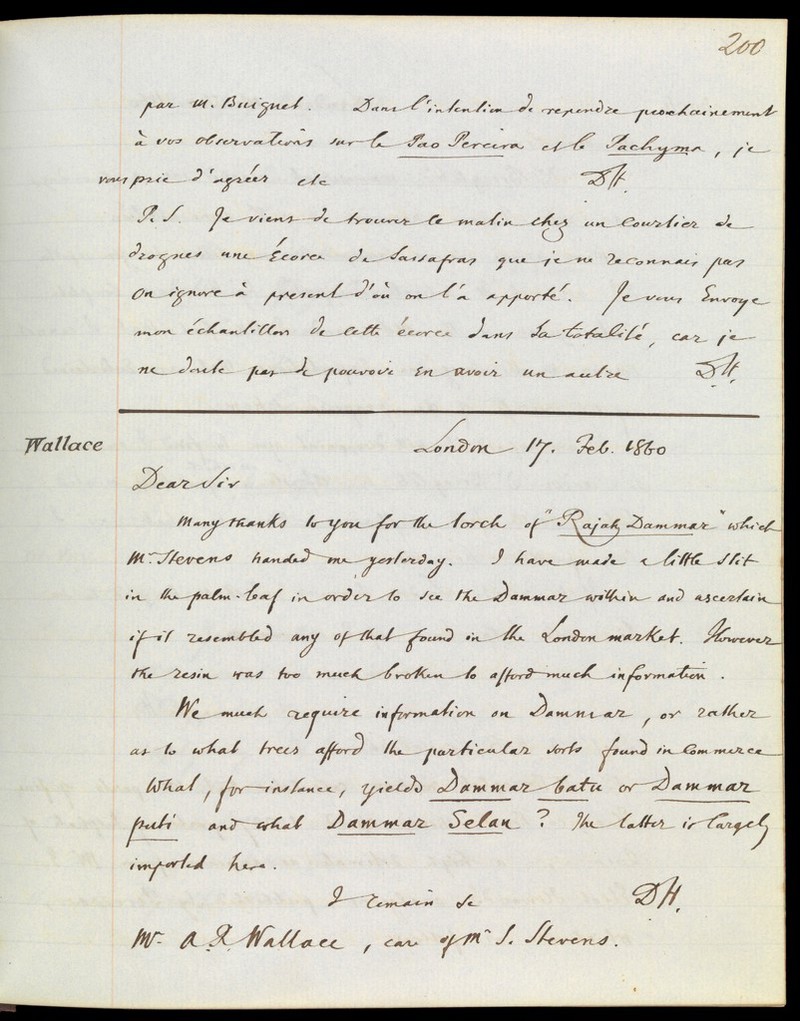 200
par M. Buignet. Dans l'intention de reprendre prochainement
à vos observations sur le Pao Pereira et le Tachyma, je
vous prie d'agréer etc DH.
P.S. Je viens de trouver ce matin chez un Courtier de
drogues une Écorce de Sassafras que je ne reconnais pas
On ignore à present d'où on l'a apporté. Je vous Envoye
mon échantillon de cette écorce dans sa totalité, car je
ne doute pas de pouvoir en avoir un autre DH.
Wallace
London 17. Feb. 1860
Dear Sir
Many thanks to you for the torch of "Rajah Dammar" which
Mr. Stevens handed me yesterday. I have made a little slit
in the palm-leaf in order to see the Dammar within and ascertain
if it resembled any of that found in the London market. However
the resin was too much broken to afford much information.
We much require information on Dammar, or rather
as to what trees afford the particular sorts found in Commerce
What, for instance, yields Dammar batu or Dammar
puti and what Dammar Selan? The latter is largely
imported here.
I remain &c DH.
Mr. A. R. Wallace, care of Mr S. Stevens.